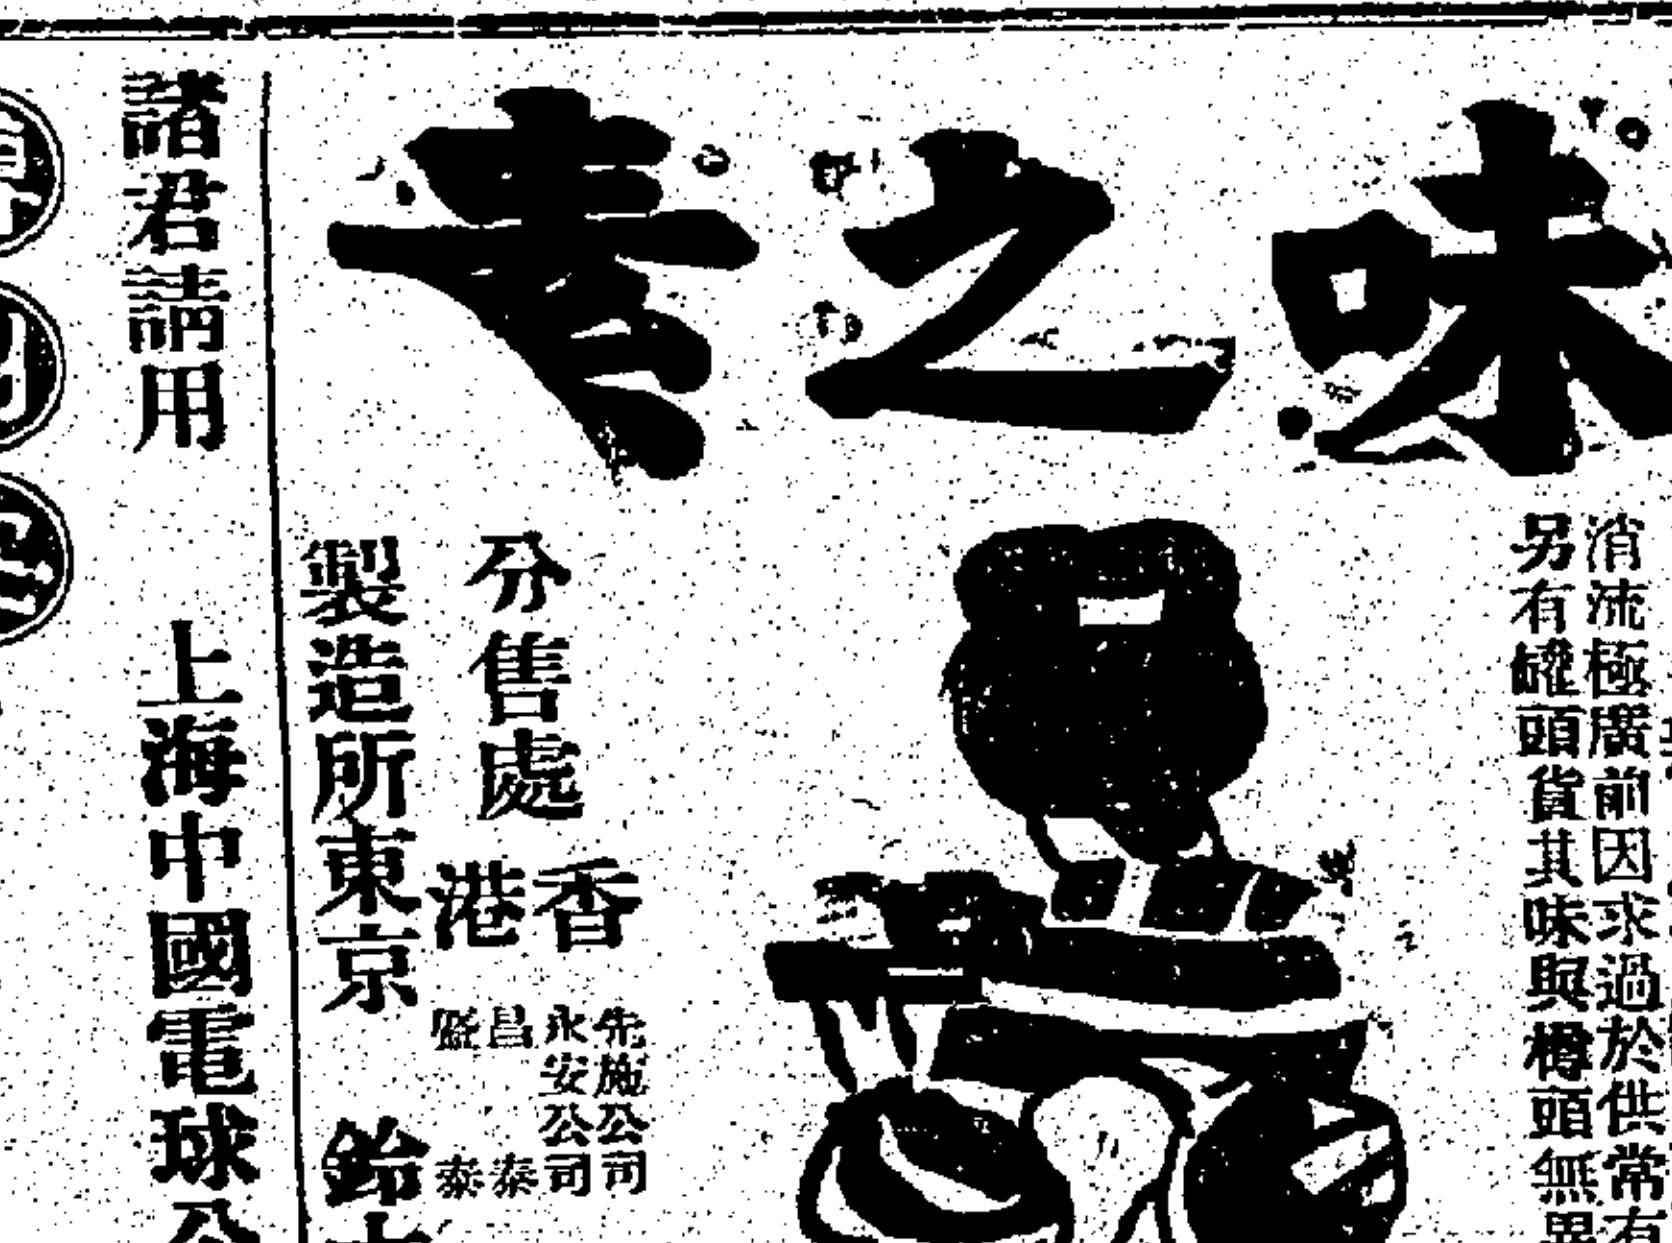 味之素
消流極廣前因求過於供常有
另有罐頭貨其味與樽頭無異
分售處
香港
先施公司
永安公司
昌泰
盛泰
製造所東京 鈴木
諸君請用 上海中國電球公